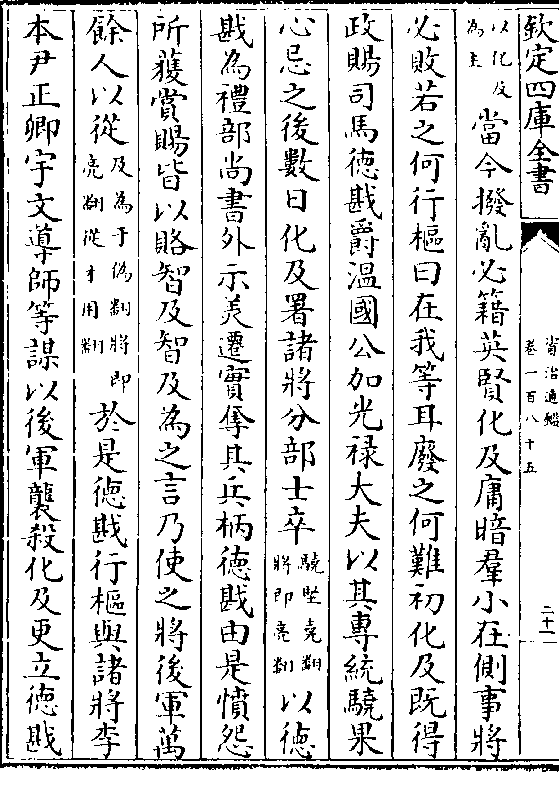 欽定四庫全書
資治通鑑
卷一百八十五
二十一
以化及
為主
當今撥亂必籍英賢化及庸暗羣小在側事將
必敗若之何行樞曰在我等耳廢之何難初化及既得
政賜司馬德戡爵温國公加光禄大夫以其專統驍果
心忌之後數日化及署諸將分部士卒
驍堅堯翻
將即亮翻
以德
戡為禮部尚書外示美遷實奪其兵柄德戡由是憤怨
所獲賞賜皆以賂智及智及為之言乃使之將後軍萬
餘人以從
及為于偽翻將即
亮翻從才用翻
於是德戡行樞與諸將李
本尹正卿宇文導師等謀以後軍襲殺化及更立德戡